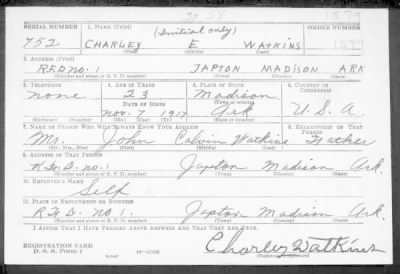 SERIAL NUMBER 1. NAME (Print) (Initial only) ORDER NUMBER
752 CHARLEY E WATKINS
(First) (Middle) (Last)
2. ADDRESS (Print)
R.F.D. NO. 1 JAPTON MADISON ARK
(Number and street or R. F. D. number) (Town) (County) (State)
3. TELEPHONE 4. AGE IN YEARS 5. PLACE OF BIRTH 6. COUNTRY OF CITIZENSHIP
none 23 Madison
DATE OF BIRTH (Town or county)
Nov. 7, 1917 Ark U.S.A.
(Mo.) (Day) (Yr.) (State or country)
7. NAME OF PERSON WHO WILL ALWAYS KNOW YOUR ADDRESS 8. RELATIONSHIP OF THAT PERSON
Mr. John Calvin Watkins Father
(Mr., Mrs., Miss) (First) (Middle) (Last)
9. ADDRESS OF THAT PERSON
R.F.D. no. 1 Japton Madison Ark.
(Number and street or R. F. D. number) (Town) (County) (State)
10. EMPLOYER'S NAME
Self
11. PLACE OF EMPLOYMENT OR BUSINESS
R.F.D. no 1. Japton Madison Ark.
(Number and street or R. F. D. number) (Town) (County) (State)
I AFFIRM THAT I HAVE VERIFIED ABOVE ANSWERS AND THAT THEY ARE TRUE.
REGISTRATION CARD
D. S. S. Form 1
Charley Watkins